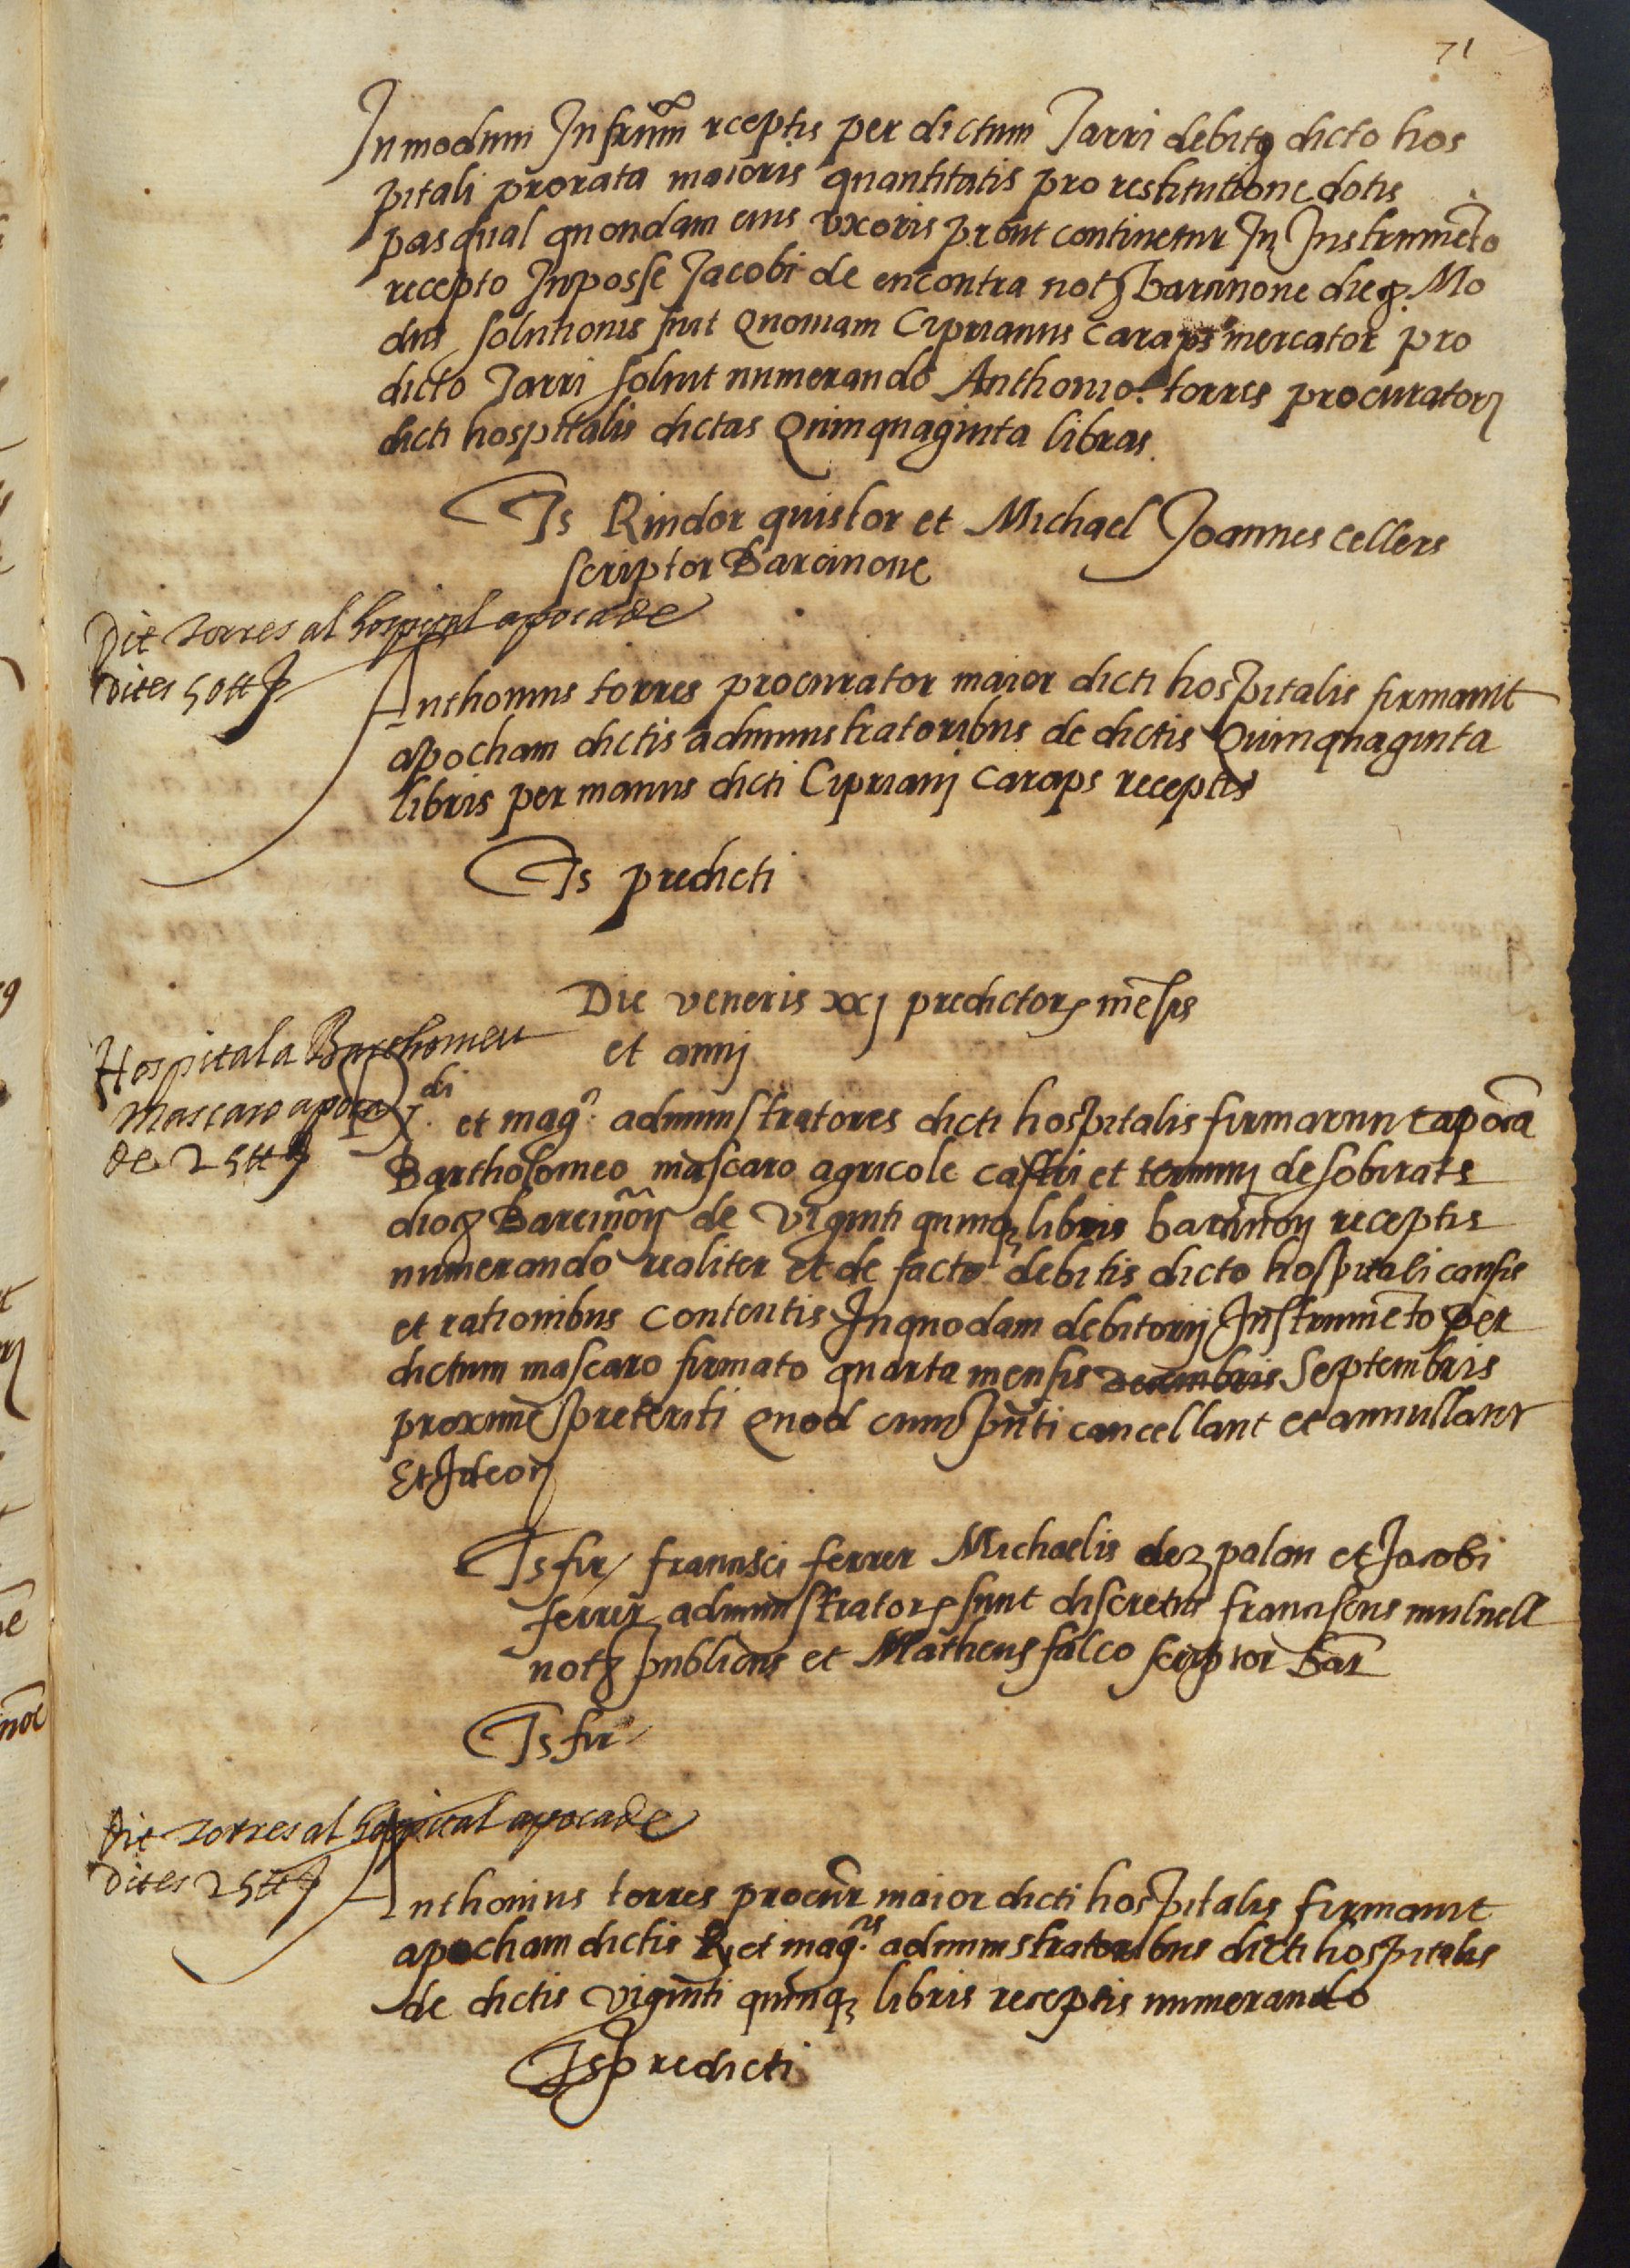 71
In modum Infrũm rceptis per dictum Jarri debitę dicto hos
pitali prorata maioris quantitatis pro restitutione dotis
pasqual quondam eius uxoris prout continetur In Instrumẽto
recepto Inposse Jacobi de encontra notꝫ barcinone dieꝫ. Mo
dus solutionis fuit Quoniam Ciprianus caraps mercator pro
dicto Jarri soluit numerando Anthonio torres procuratorj
dicti hospitalis dictas Quinquaginta libras.
Ts Rindor quistor et Michael Joannes cellers
scriptor Barcinone
Dit torres al hospital apoca de
dites 50 ℔
Anthonius torres procurator maior dicti hospitalis firmauit
apocham dictis administratoribus de dictis Quinquaginta
libris per manus dicti Ciprianj caraps receptis
Ts predicti
Die veneris xxj predictorꝝ mẽsis
et annj
Hospital a Barthomeu
mascaro apoca
de 25 ℔
R.di et magꝫ. administratores dicti hospitalis firmarunt apocã
Bartholomeo mascaro agricole castri et terminj de sobirats
diocꝫ Barcinoñ de viginti quinqꝫ libris barcinoñ receptis
numerando realiter et de facto debitis dicto hospitali causis
et rationibus contentis In quodam debitorij Instrumẽto per
dictum mascaro firmato quarta mensis decembris Septembris
proxime preteriti Quod cum pñti cancellant et annullant
Et Ideo
Ts fir francisci ferrer Michaelis dez palau et Jacobi
ferrer administratorꝝ sunt discretus franciscus mulnell
notꝫ publicus et Matheus falco scriptor Bar̃
Ts fir
Dit torres al hospital apoca de
dites 25 ℔
Anthonius torres procur̃ maior dicti hospitalis firmauit
apocham dictis R. et magꝫ.is administratoribus dicti hospitalis
de dictis viginti quinqꝫ libris receptis numerando
Ts predicti